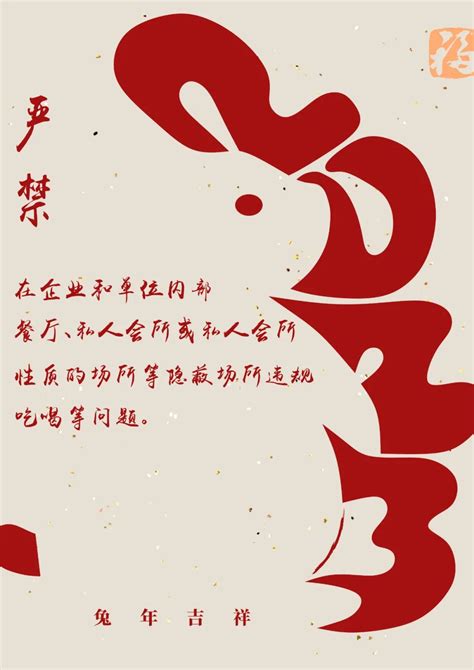 福
严
禁
在企业和单位内部
餐厅、私人会所或私人会所
性质的场所等隐蔽场所违规
吃喝等问题。
兔年吉祥